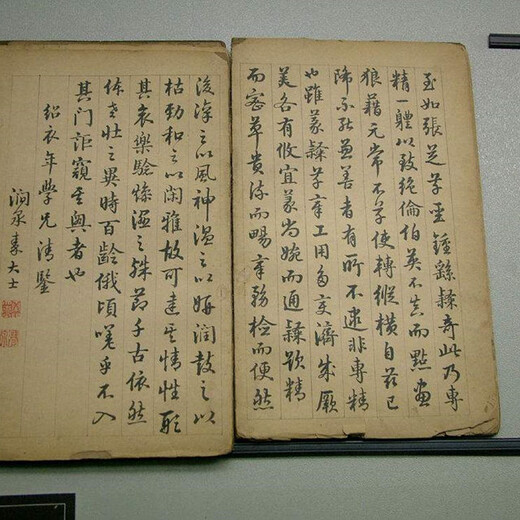 至如張芝草聖鍾繇隸奇此乃專
精一體以致絕倫伯英不真而點畫
狼藉元常不草使轉縱橫自茲已
降不能兼善者有所不逮非專精
也雖篆隸草章工用多變濟成厥
美各有攸宜篆尚婉而通隸欲精
而密草貴流而暢章務檢而便然
後凜之以風神溫之以妍潤鼓之以
枯勁和之以閑雅故可達其情性形
其哀樂驗燥濕之殊節千古依然
体老壯之異時百齡俄頃嗟乎不入
其門詎窺其奧者也
紹衣年學兄清鑒
澗泉秦大士